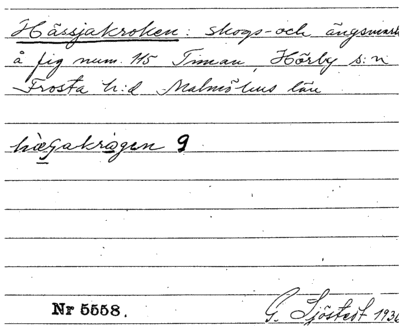 Hässjakroken: skogs- och ängsmark
å fig num. 115 Timan, Hörby s:n
Frosta h:d Malmöhus län
9
Nr 5558.
G. Sjöstedt 1936